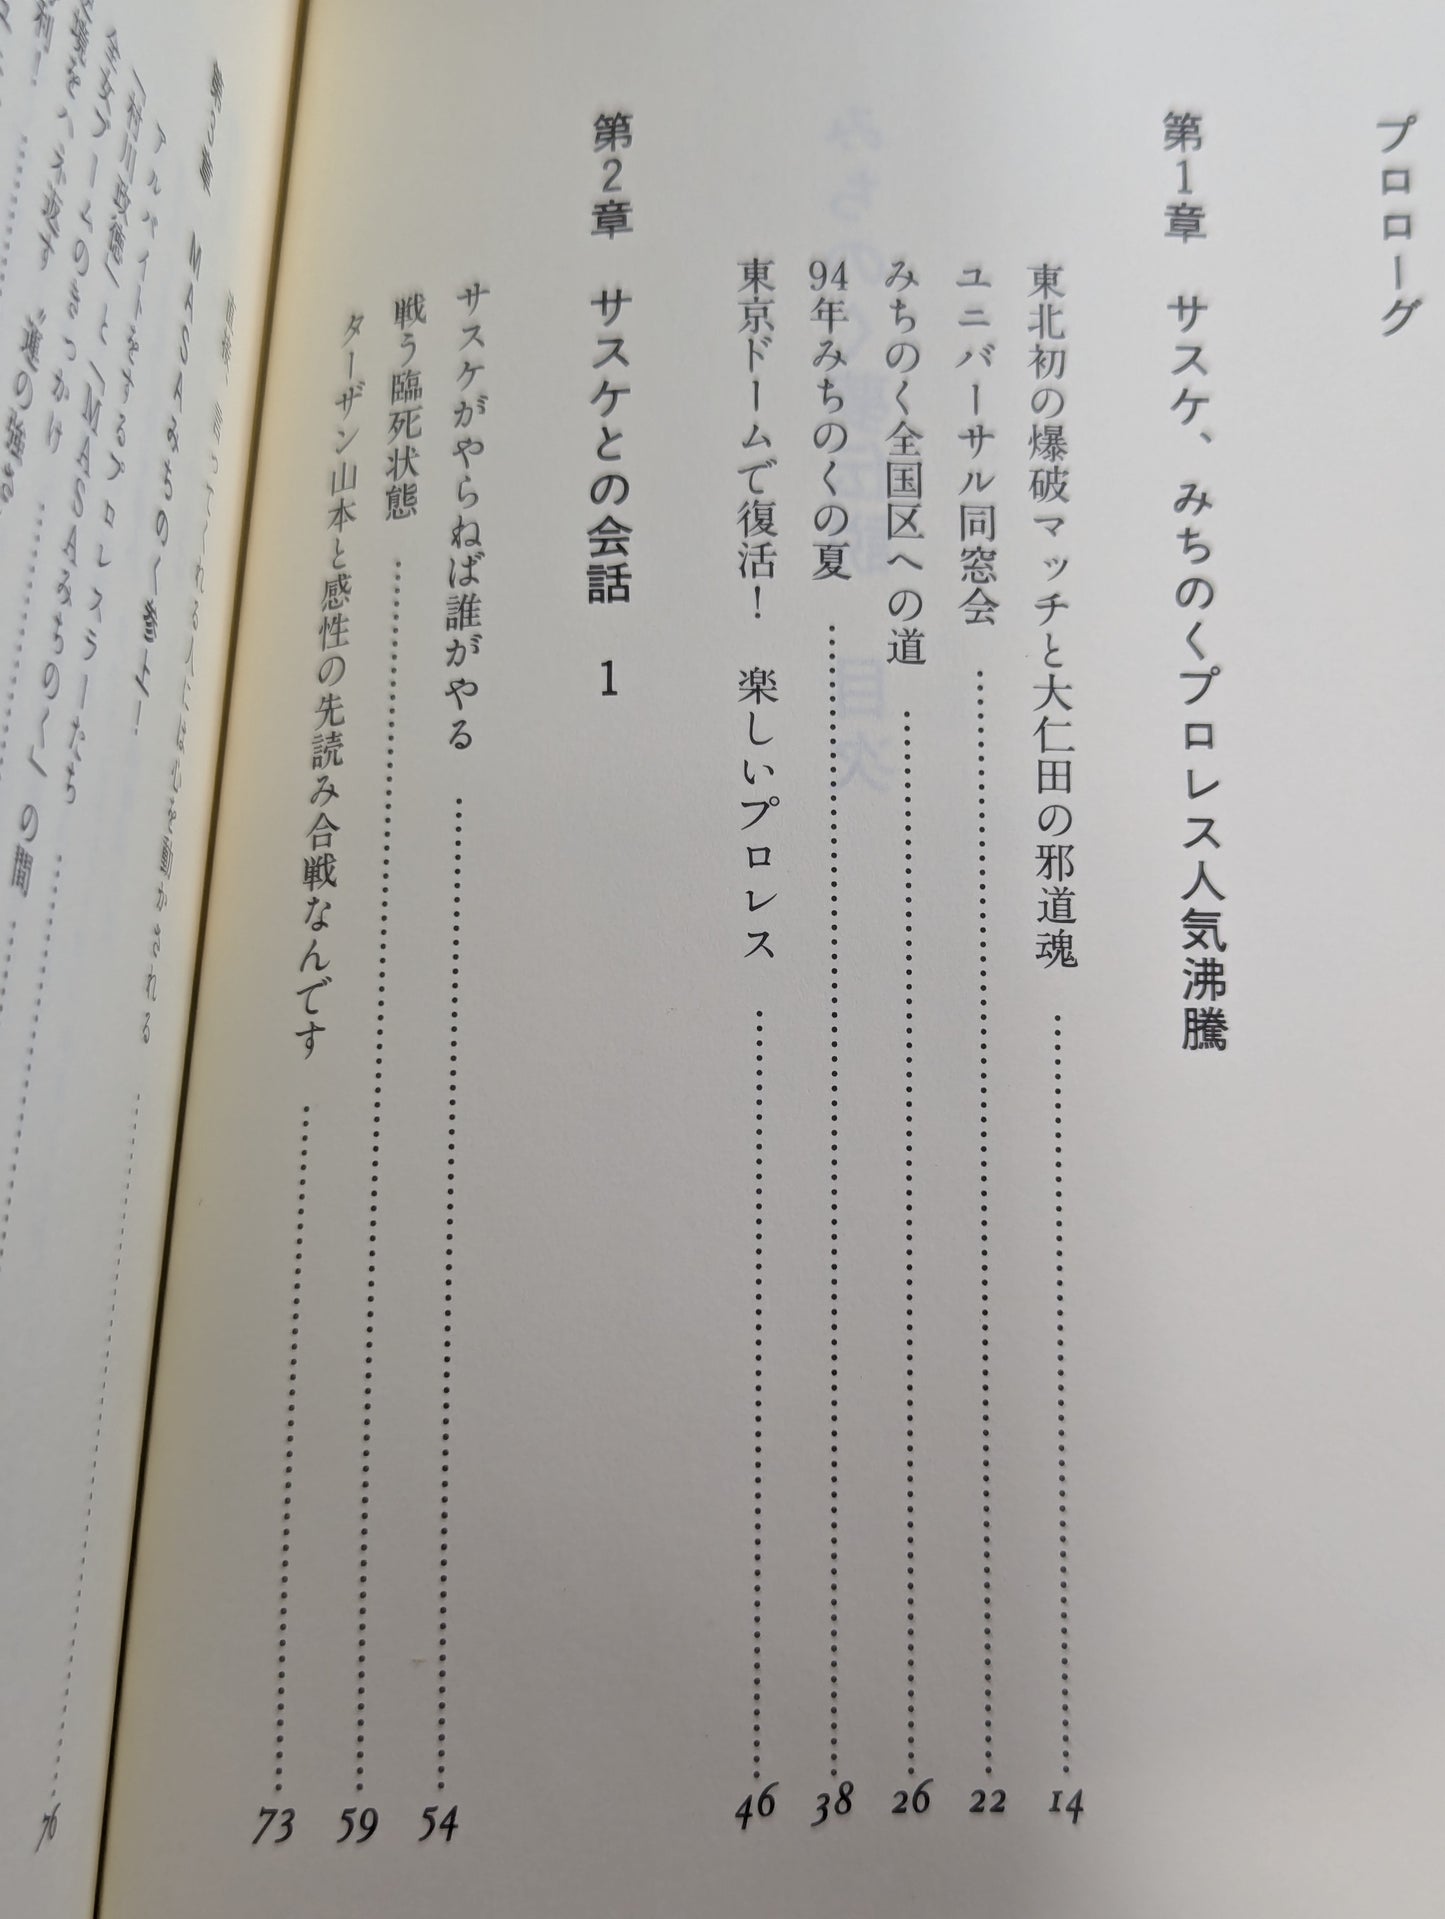 プロローグ
第1章 サスケ、みちのくプロレス人気沸騰
東北初の爆破マッチと大仁田の邪道魂 14
ユニバーサル同窓会 22
みちのく全国区への道 26
94年みちのくの夏 38
東京ドームで復活! 楽しいプロレス 46
第2章 サスケとの会話 1
サスケがやらねば誰がやる 54
戦う臨死状態 59
ターザン山本と感性の先読み合戦なんです 73
第3章 MASAみちのく参上!
アルバイトをするプロレスラーたち
76